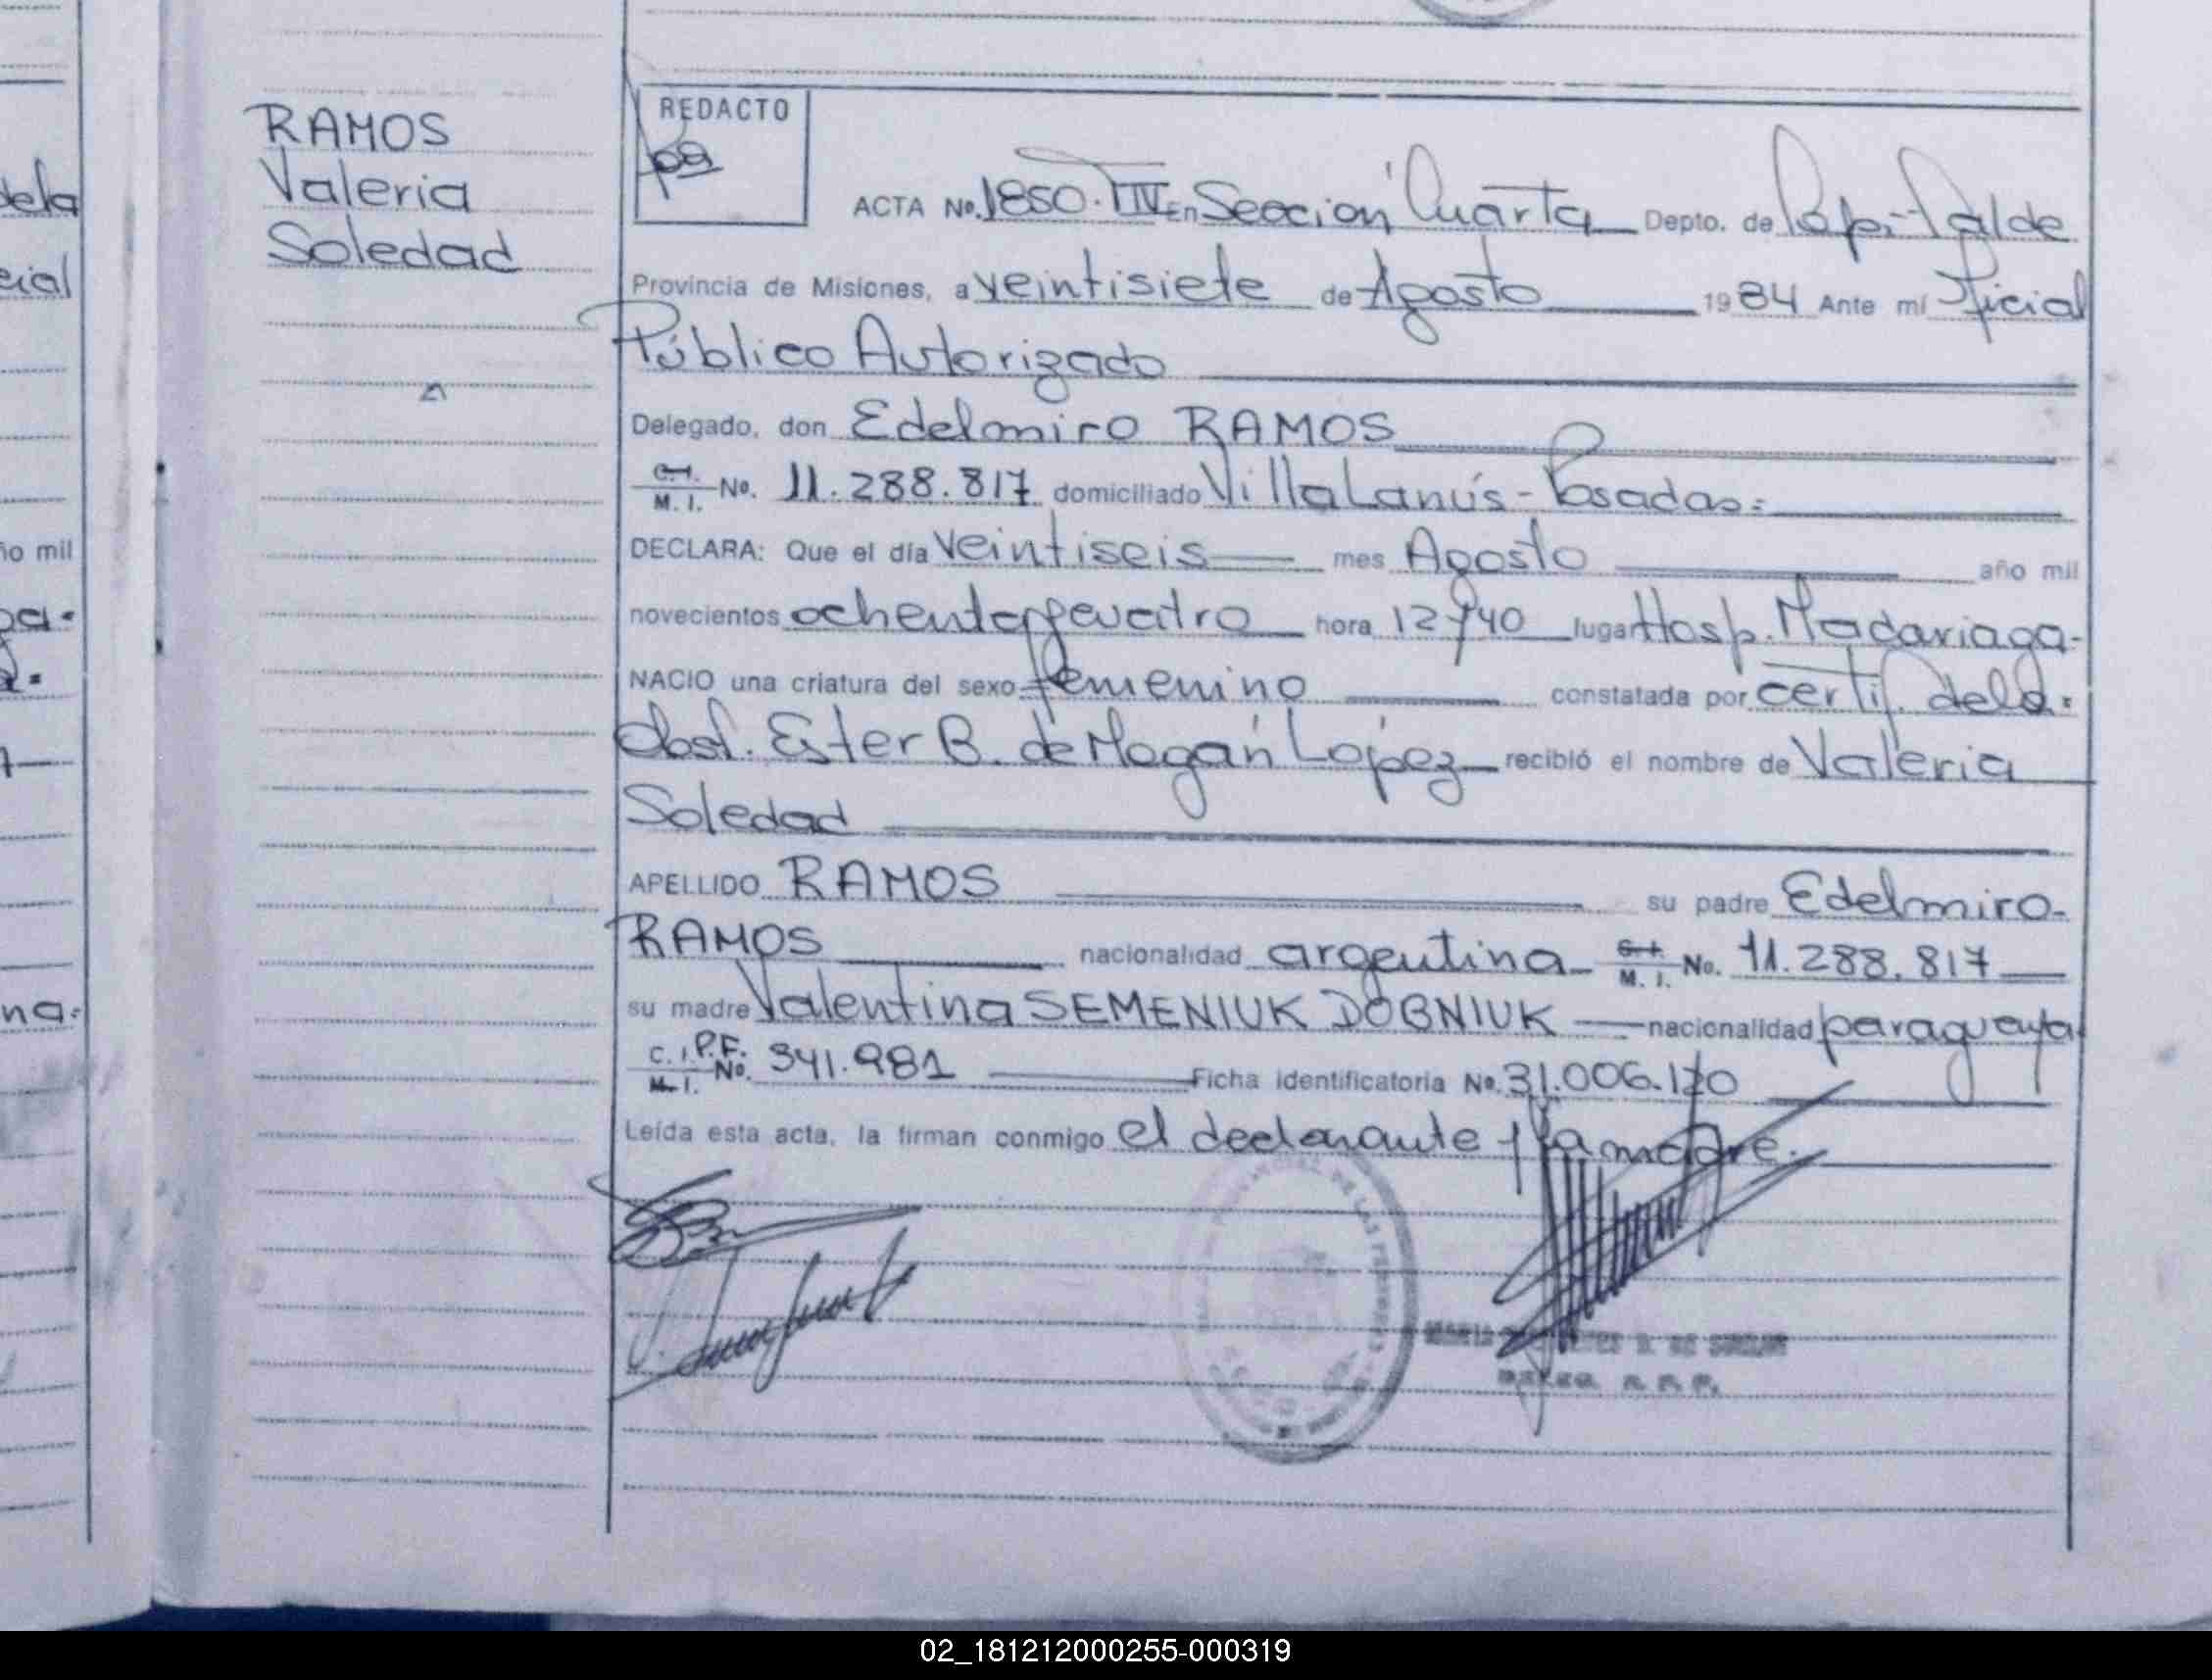 RAMOS
Valeria
Soledad
dela
cial
ño mil
na=
REDACTO
ACTA No. 1850. TIV En Sección Cuarta Depto. de Cap.
Provincia de Misiones, a veintisiete de Agosto 1984 Ante mí Oficial
Público Autorizado
Delegado, don Edelmiro RAMOS
C.I. M. I. No. 11.288.817 domiciliado Villa Lanús - Posadas=
DECLARA: Que el día veintiseis mes Agosto año mil
novecientos ochenta y cuatro hora 12 y 40 lugar Hosp. Madariaga-
NACIO una criatura del sexo femenino constatada por certif. de la
Obst. Ester B. de Magán López recibió el nombre de Valeria
Soledad
APELLIDO RAMOS su padre Edelmiro-
RAMOS nacionalidad argentina M. I. No. 11.288.817
su madre Valentina SEMENIUK DOBNIUK nacionalidad paraguaya
C. I. P.F. M. I. No. 341.981 Ficha identificatoria No. 31.006.170
Leída esta acta, la firman conmigo el declarante y la madre.
PROVINCIAL DE LAS PERSONAS
02_181212000255-000319